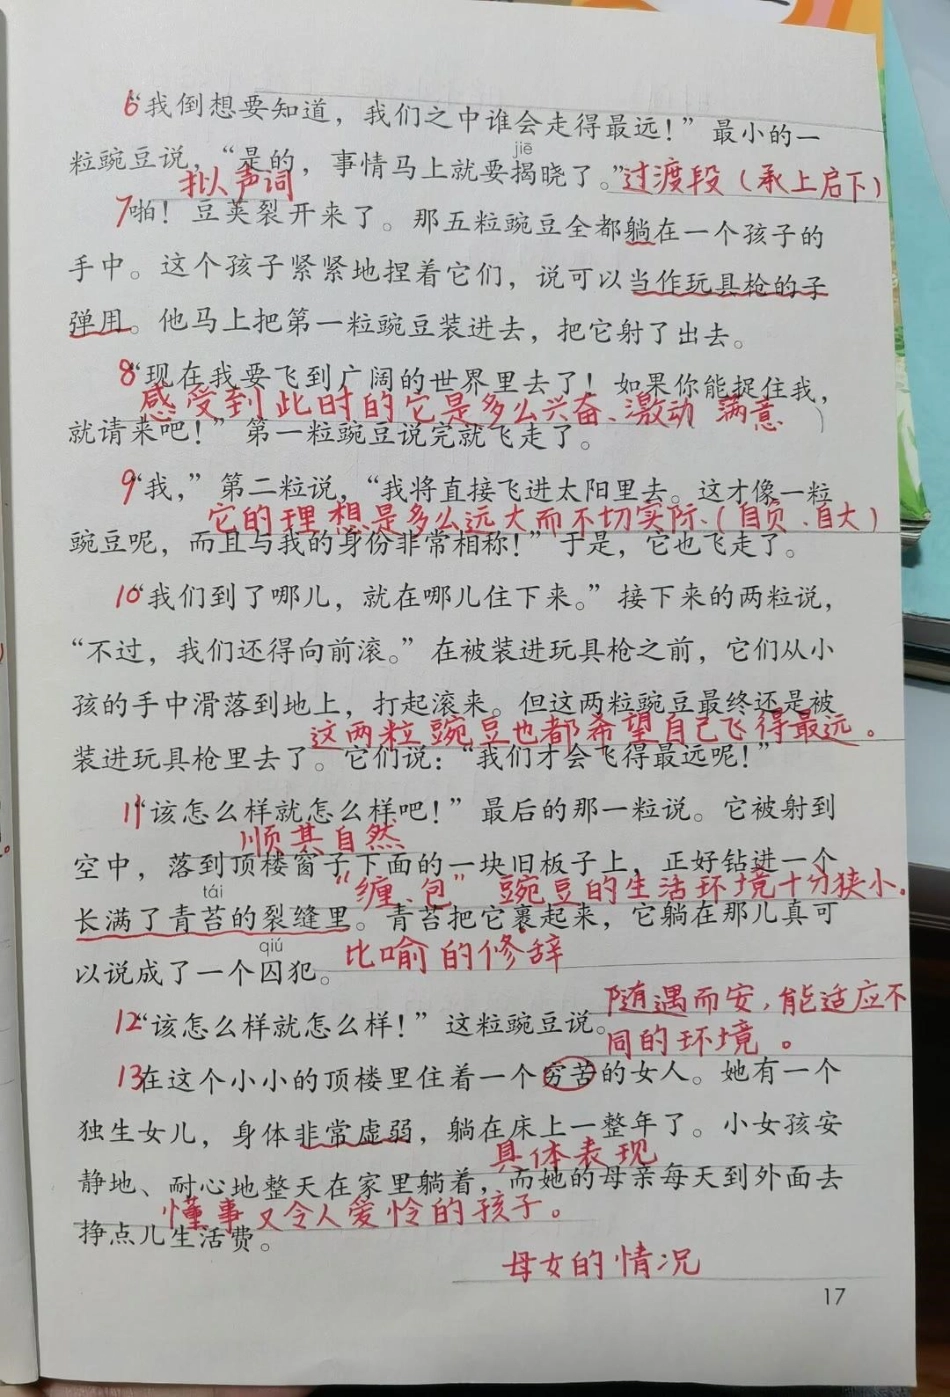 6“我倒想要知道，我们之中谁会走得最远！”最小的一
jiē
粒豌豆说，“是的，事情马上就要揭晓了。”过渡段（承上启下）
拟声词
7啪！豆荚裂开来了。那五粒豌豆全都躺在一个孩子的
手中。这个孩子紧紧地捏着它们，说可以当作玩具枪的子
弹用。他马上把第一粒豌豆装进去，把它射了出去。
8“现在我要飞到广阔的世界里去了！如果你能捉住我，
感受到此时的它是多么兴奋、激动 满意
就请来吧！”第一粒豌豆说完就飞走了。
9“我，”第二粒说，“我将直接飞进太阳里去。这才像一粒
它的理想是多么远大而不切实际、（自负、自大）
豌豆呢，而且与我的身份非常相称！”于是，它也飞走了。
10“我们到了哪儿，就在哪儿住下来。”接下来的两粒说，
“不过，我们还得向前滚。”在被装进玩具枪之前，它们从小
孩的手中滑落到地上，打起滚来。但这两粒豌豆最终还是被
这两粒豌豆也都希望自己飞得最远。
装进玩具枪里去了。它们说：“我们才会飞得最远呢！”
11“该怎么样就怎么样吧！”最后的那一粒说。它被射到
顺其自然
空中，落到顶楼窗子下面的一块旧板子上，正好钻进一个
“缠、包” 豌豆的生活环境十分狭小。
tái
长满了青苔的裂缝里。青苔把它裹起来，它躺在那儿真可
qiú
以说成了一个囚犯。比喻的修辞
随遇而安，能适应不
12“该怎么样就怎么样！”这粒豌豆说。
同的环境。
13在这个小小的顶楼里住着一个穷苦的女人。她有一个
独生女儿，身体非常虚弱，躺在床上一整年了。小女孩安
具体表现
静地、耐心地整天在家里躺着，而她的母亲每天到外面去
懂事又令人爱怜的孩子。
挣点儿生活费。
母女的情况
17